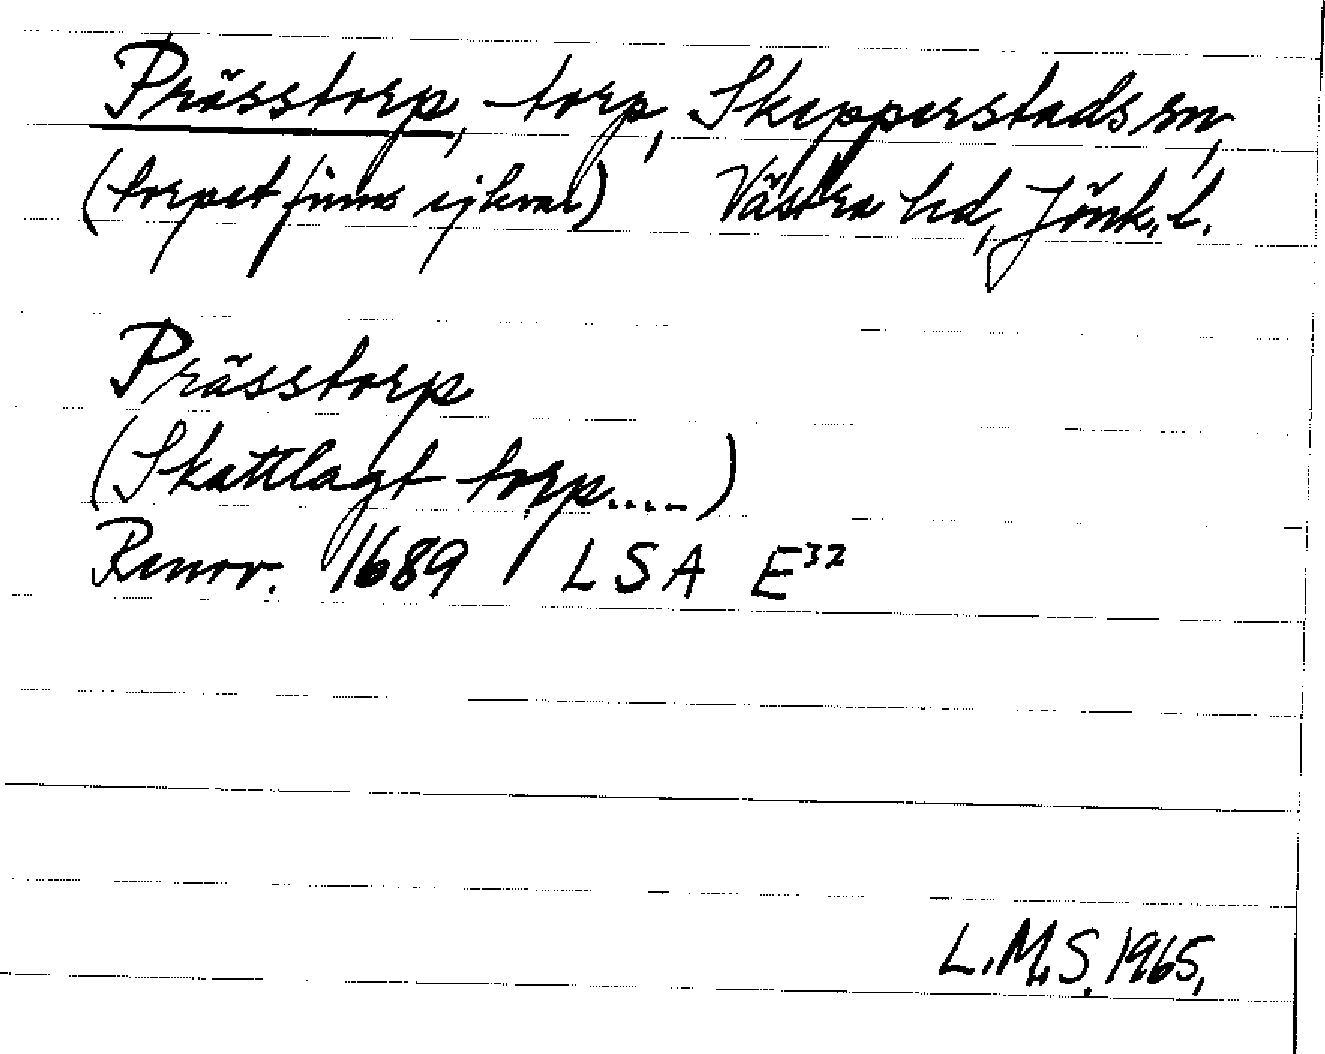 Prässtorp, torp, Skepperstads sn,
(torpet finns ej kvar) Västra hd, Jönk. l.
Prässtorp
(Skattlagt torp.....)
Renov. 1689 LSA E³²
L.M.S. 1965,